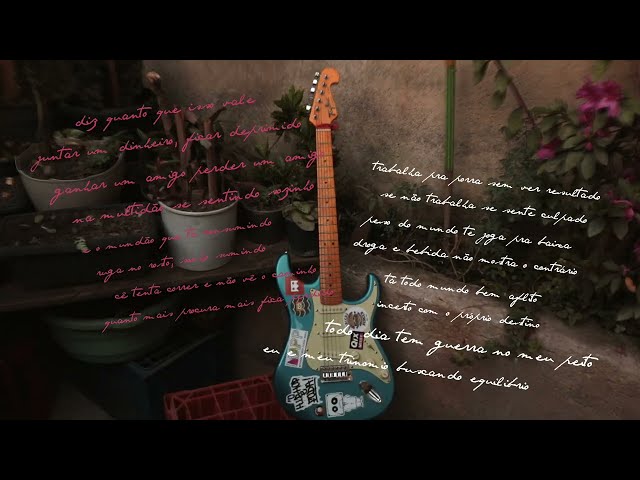 diz quanto que isso vale
juntar um dinheiro, ficar deprimido
ganhar um amigo perder um amigo
na multidão se sentindo sozinho
e o mundão que te consumindo
ruga no rosto, sumindo
cê tenta correr e não vê o caminho
quanto mais procura mais fica
trabalha pra porra sem ver resultado
se não trabalha se sente culpado
peso do mundo te joga pra baixa
droga e bebida não mostra o contrário
tá todo mundo bem aflito
incerto com o próprio destino
todo dia tem guerra no meu peito
eu e meu trinômio buscando equilíbrio